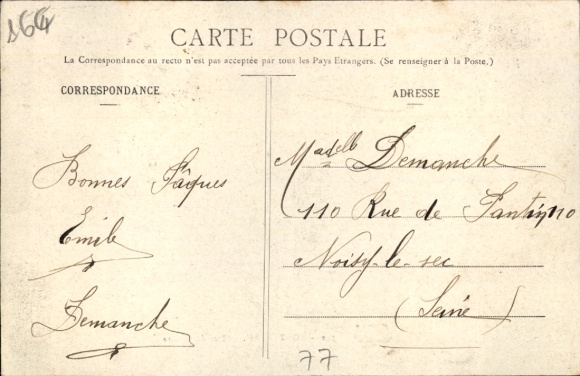 CARTE POSTALE
La Correspondance au recto n'est pas acceptée par tous les Pays Etrangers. (Se renseigner à la Poste.)
CORRESPONDANCE
Bonnes Pâques
Emile
Demanche
ADRESSE
Madelle Demanche
110 Rue de
Noisy-le-sec
(Seine)
77